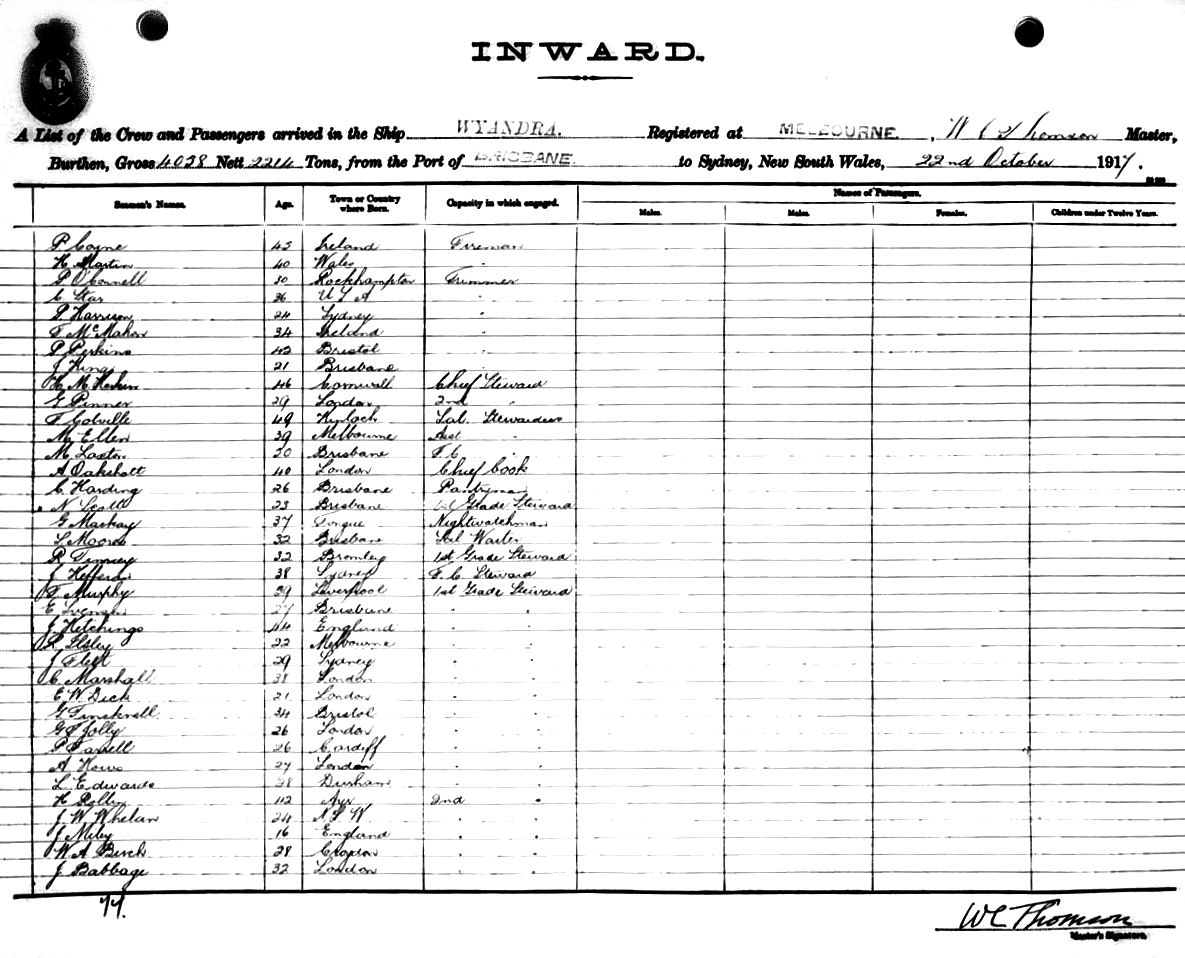 INWARD.
A List of the Crew and Passengers arrived in the Ship WYANDRA. Registered at MELBOURNE. , W C Thomson Master,
Burthen, Gross 4028 Nett 2214 Tons, from the Port of BRISBANE. to Sydney, New South Wales, 22nd October 1917.
Seamen's Names. Age. Town or Country where Born. Capacity in which engaged. Names of Passengers.
Males. Males. Females. Children under Twelve Years.
P Coyne 45 Ireland Fireman
H Martin 40 Wales "
P O'Connell 30 Rockhampton Trimmer
C Star 36 U S A "
P Harrison 24 Sydney "
F McMahon 34 Ireland "
P Perkins 42 Bristol "
J King 21 Brisbane
46 Cornwall Chief Steward
G Pinner 29 London 2nd "
F Colville 49 Kinloch Sal. Stewardess
M Ellen 39 Melbourne Asst "
M Laxton 20 Brisbane F. C "
A Oakshott 40 London Chief Cook
C Harding 26 Brisbane Pantryman
N Scott 23 Brisbane 1st Grade Steward
G Mackay 37 Tongue Nightwatchman
S Moores 32 Brisbane Sal Waiter
R 32 Bromley 1st Grade Steward
J Heffernan 38 Sydney F. C Steward
Murphy 39 Liverpool 1st Grade Steward
E Svensen 27 Brisbane " "
J Hetchings 44 England " "
Ilsley 22 Melbourne " "
J Fleet 29 Sydney " "
C. Marshall 38 London " "
E W Dick 21 London " "
G 34 Bristol " "
G F Jolly 26 London " "
P Farrell 26 Cardiff " "
A Hows 27 London " "
L Edwards 38 Durham " "
H 42 Ayr 2nd "
J W Whelan 24 N S W " "
J Miley 16 England " "
W A Birch 28 Croydon " "
J Babbage 32 London " "
77.
WC Thomson
Master's Signature.